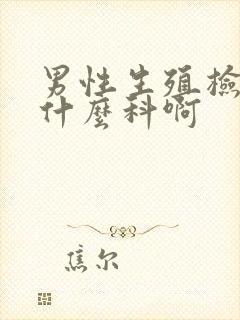 男性生殖檢
什麼科啊
焦尔